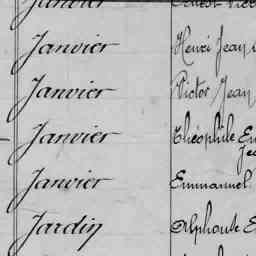 Janvier Ernest
Janvier Henri Jean
Janvier Victor Jean
Janvier Théophile
Janvier Emmanuel
Jardin Alphonse